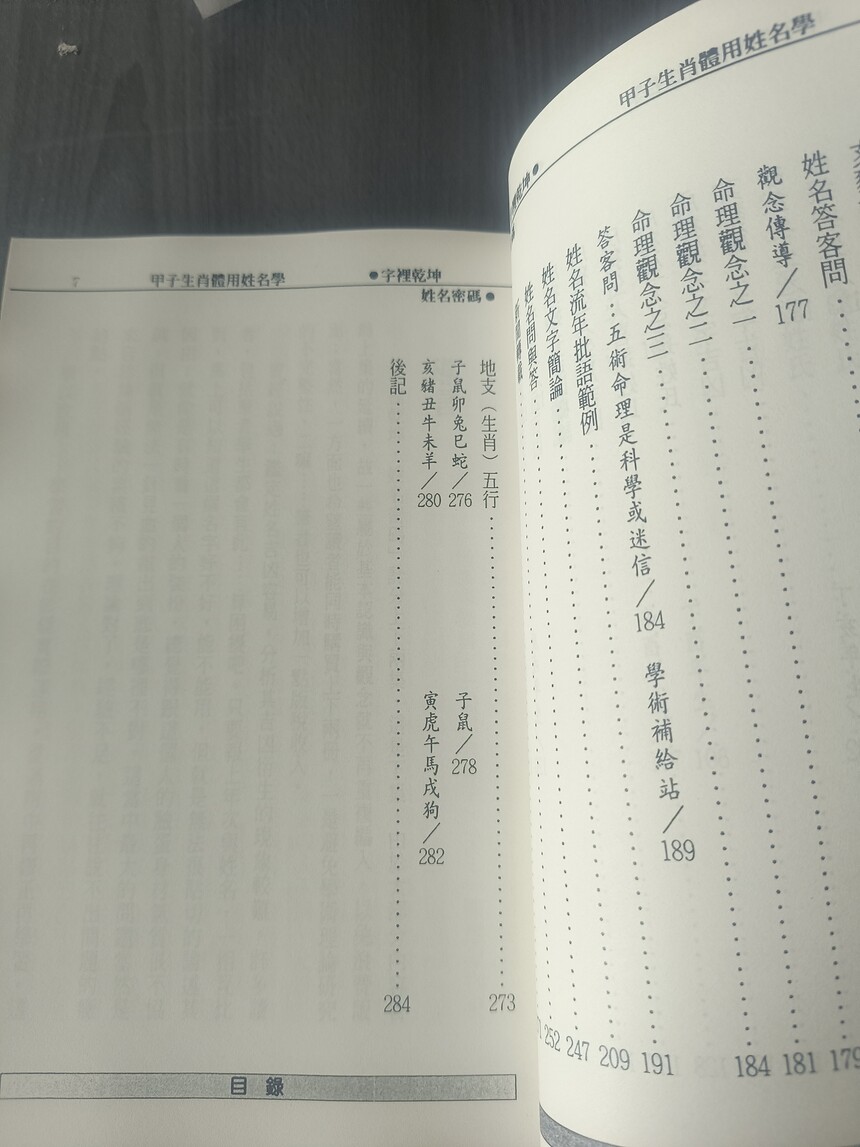 甲子生肖體用姓名學
姓名答客問
觀念傳導／177
命理觀念之一 179
命理觀念之二 181
命理觀念之三 184
答客問：五術命理是科學或迷信／184 學術補給站／189
姓名流年批語範例 191
姓名文字簡論 209
姓名問與答 247
252
7 甲子生肖體用姓名學 ●字裡乾坤
姓名密碼●
地支（生肖）五行 273
子鼠卯兔巳蛇／276 子鼠／278
亥豬丑牛未羊／280 寅虎午馬戌狗／282
後記 284
目錄